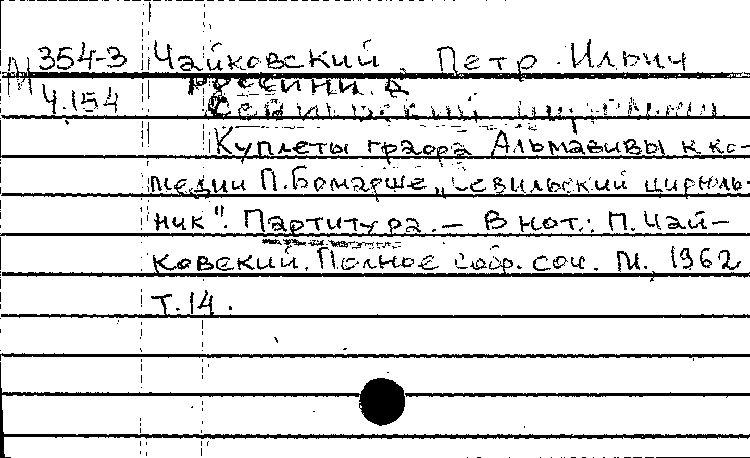 М 354-3 Чайковский, Петр Ильич
Россини. Д
Ч.154 Севильский цирюльник
Куплеты графа Альмавивы к ко-
медии П. Бомарше „Севильский цирюль-
ник". Партитура. — В нот.: П. Чай-
ковский. Полное собр. соч. М., 1962
Т.14.